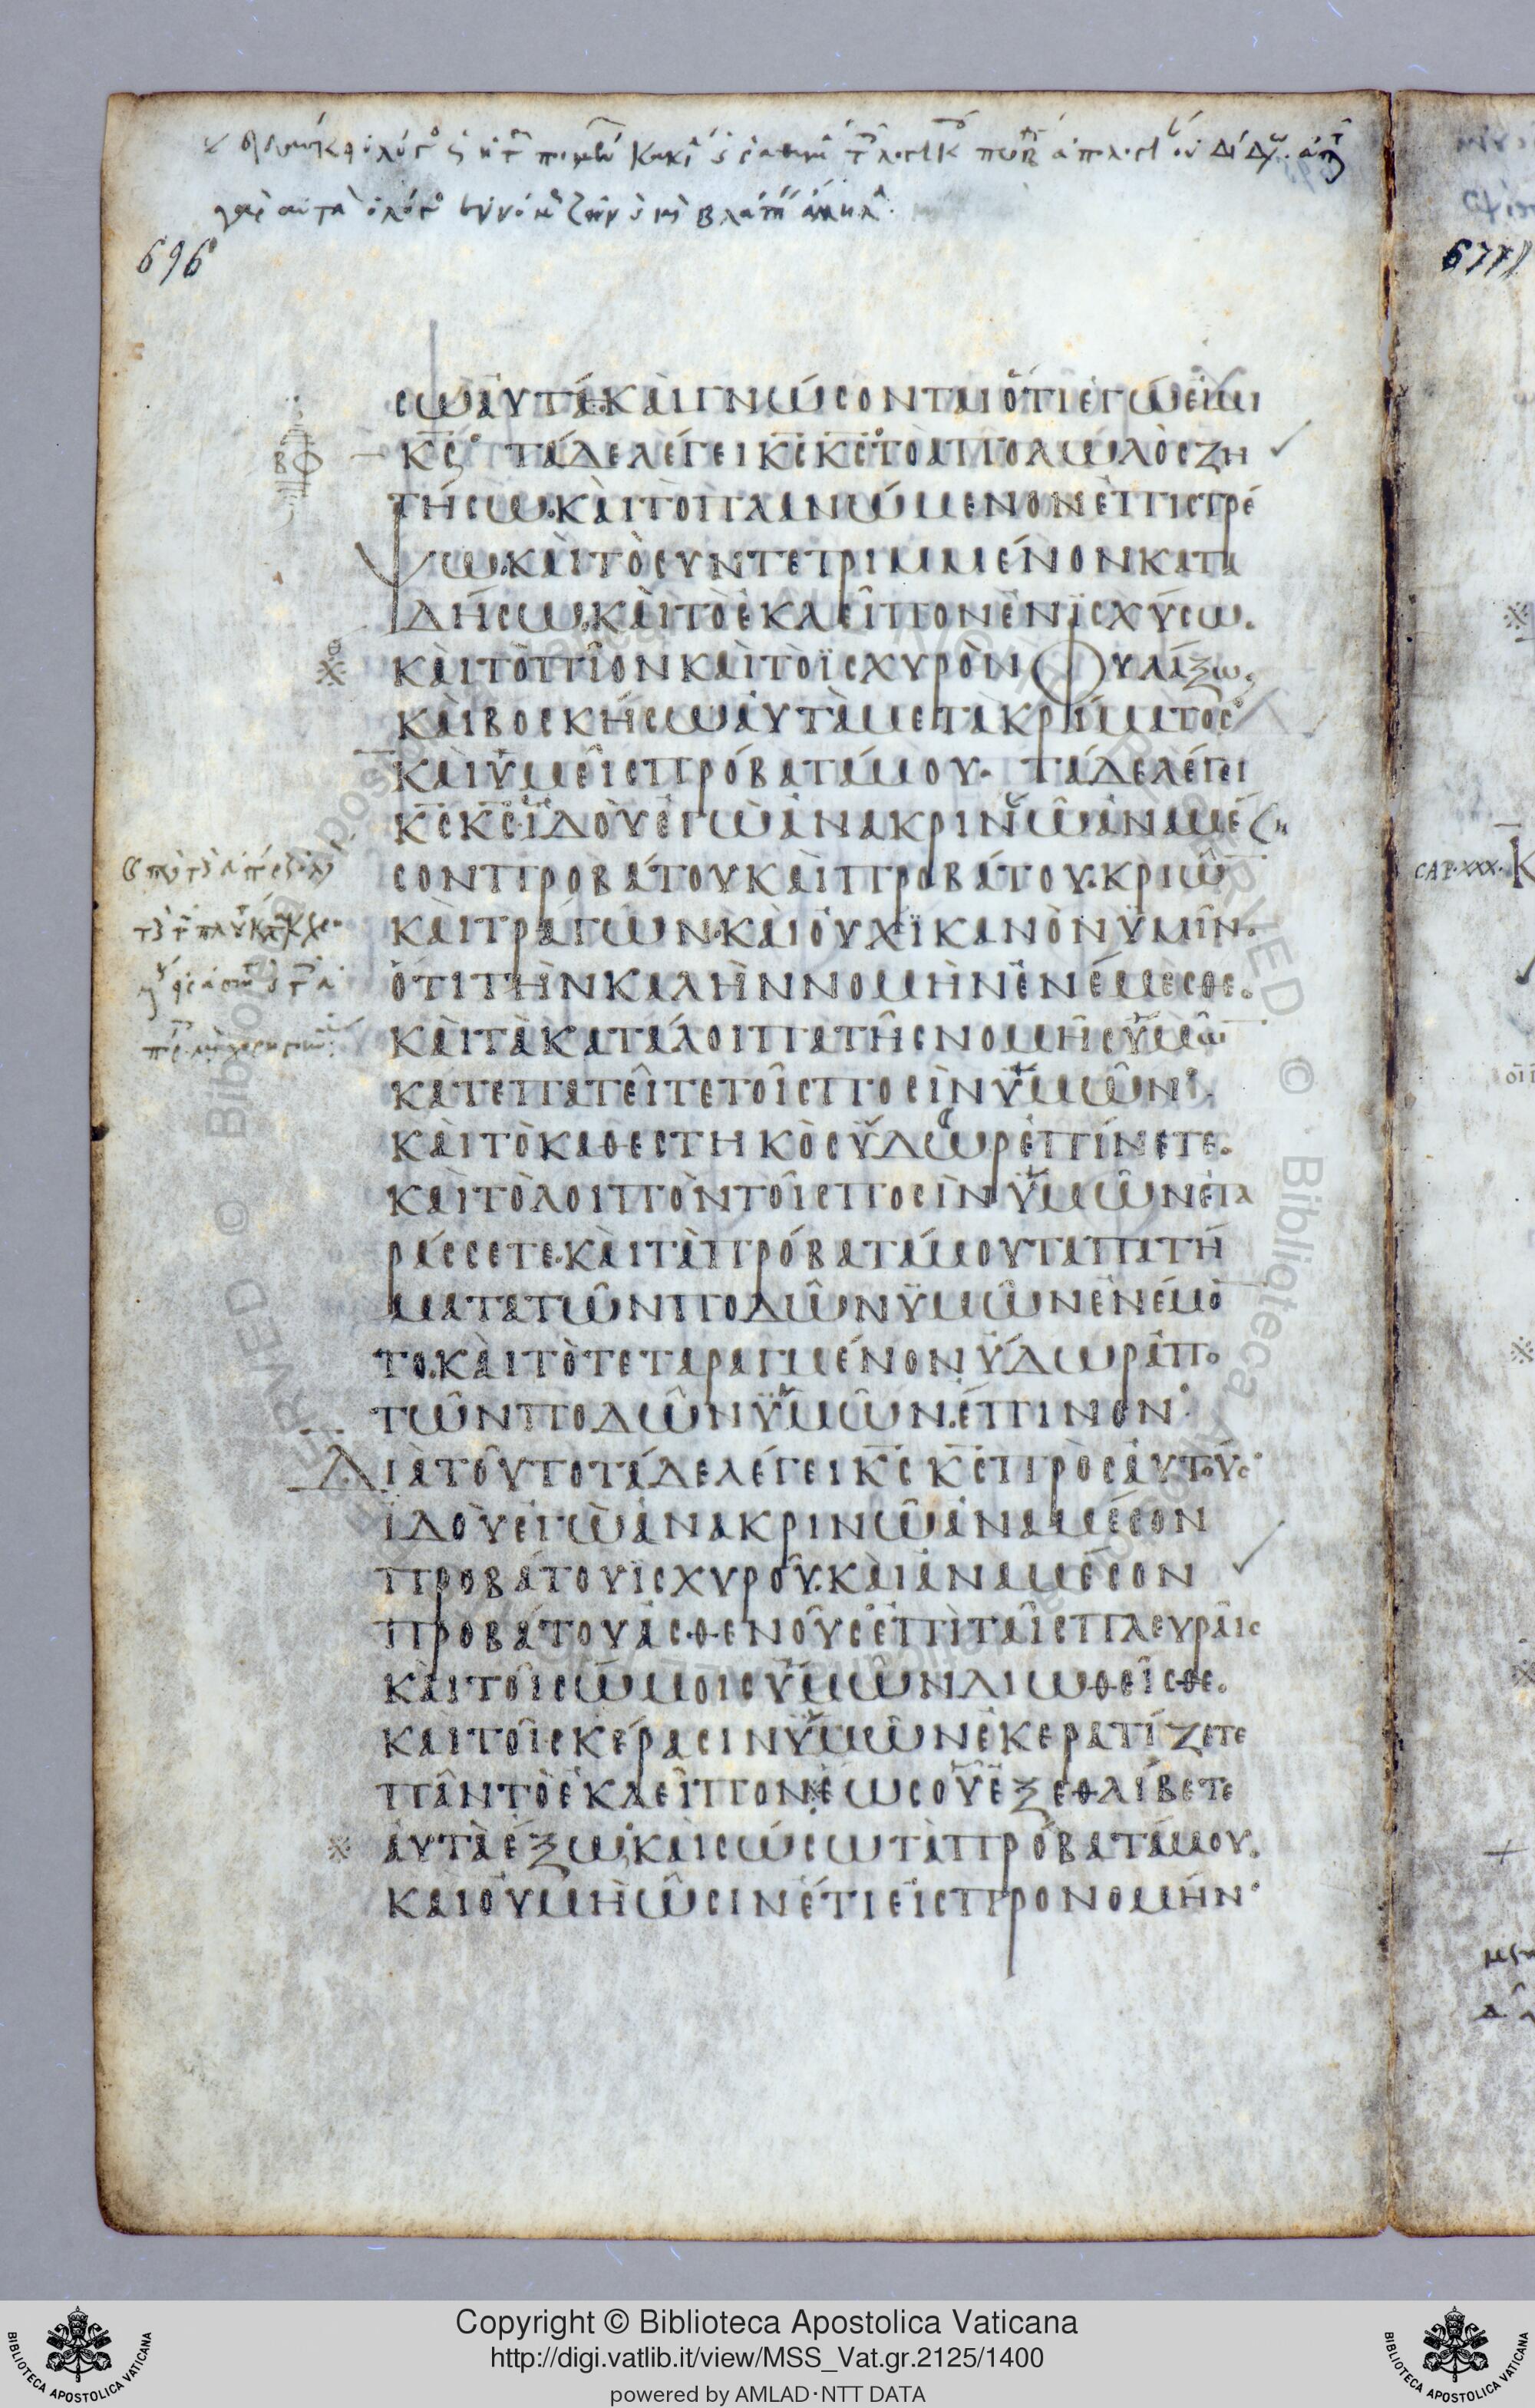 696
677
ϲωἀυτά·κὰιγνώϲονταιὅτιἐγώἐιμι
κ̅ϲ̅· τάδελέγεικ̅ϲ̅κ̅ϲ̅·τὸαπολωλὸϲζη
τήϲω·κὰιτὸπλανώμενονἐπιϲτρέ
ψω·κὰιτὸϲυντετριμμένονκατα
δήϲω·κὰιτὸἐκλεῖπονἐνϊϲχύϲω.
κὰιτὸπῖονκαὶτὸϊϲχυρὸνφυλάξω.
κὰιβοϲκήϲωἀυτὰμετὰκρίματοϲ·
κὰιὑμεῖϲπρόβατάμου· τάδελέγει
κ̅ϲ̅κ̅ϲ̅·ἰδὸυἐγὼἀνακρινῶἀναμέ
ϲονπροβάτουκὰιπροβάτου·κριῶ̅
κὰιτράγων·κὰιὀυχϊκανὸνϋμῖν.
ὅτιτὴνκαλὴννομὴνἐνέμεϲθε.
κὰιτὰκατάλοιπατῆϲνομῆϲὑμῶ̅
κατεπατεῖτετοῖϲποϲὶνϋμῶν·
κὰιτὸκαθεϲτηκὸϲὕδωρἐπίνετε.
κὰιτὸλοιπὸντοῖϲποϲὶνϋμῶνἐτα
ράϲϲετε·κὰιτὰπρόβατάμουταπατή
ματατῶνποδῶνϋμῶνἐνέμο̅
το.κὰιτὸτεταραγμένονὕδωρὑπο
τῶνποδῶνϋμῶν.ἔπινον·
Διὰτοῦτοτάδελέγεικ̅ϲ̅κ̅ϲ̅πρὸϲἀυτόυϲ·
ἰδὸυἐγὼἀνακρινῶἀναμέϲον
προβάτουϊϲχυροῦ.κὰιἀναμέϲον
προβάτουἀϲθενοῦϲ·ἐπὶταῖϲπλευρᾶιϲ
κὰιτοῖϲώμοιϲὑμῶνδιωθεῖϲθε.
κὰιτοῖϲκέραϲινϋμῶνἐκερατίζετε
πᾶντὸἐκλεῖπον·ἕωϲοὗἐξεθλίβετε
ἀυτὰἔξω·κὰιϲώϲωτὰπρόβατάμου.
κὰιὀυμὴὦϲινἔτιἐιϲπρονομήν·
CAP·XXX.
Copyright © Biblioteca Apostolica Vaticana
http://digi.vatlib.it/view/MSS_Vat.gr.2125/1400
powered by AMLAD·NTT DATA
BIBLIOTECA APOSTOLICA VATICANA
BIBLIOTECA APOSTOLICA VATICANA